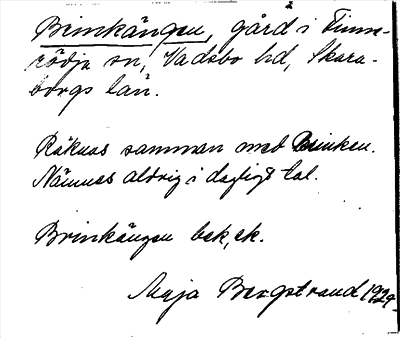 Brinkängen, gård i Finne-
rödja sn, Vadsbo hd, Skara-
borgs län.
Räknas samman med Brinken.
Nämnes aldrig i dagligt tal.
Brinkängen bek, ek.
Maja Bergstrand 1929.